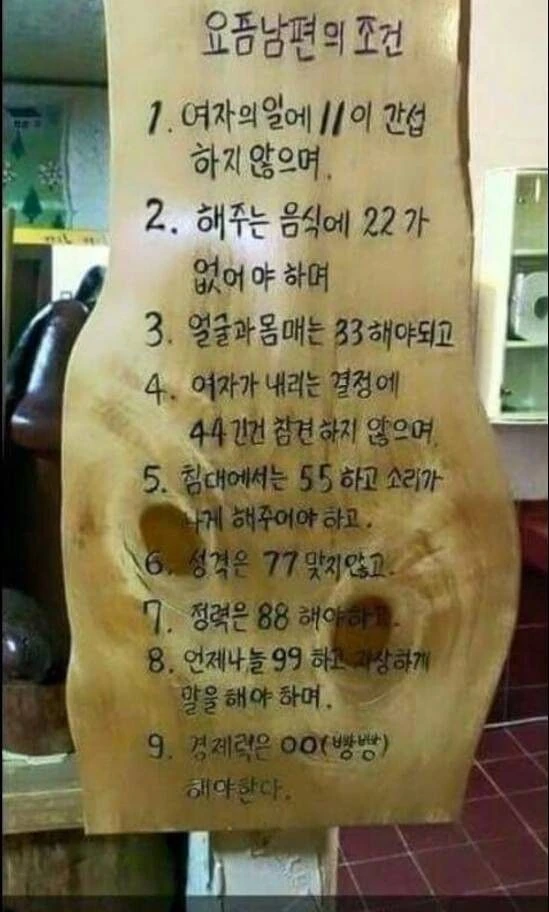 요즘남편의 조건
1. 여자의일에 11이 간섭
하지 않으며.
2. 해주는 음식에 22가
없어야 하며
3. 얼굴과몸매는 33해야되고
4. 여자가 내리는 결정에
44건건 참견하지 않으며.
5. 침대에서는 55하고 소리가
나게 해주어야하고.
6. 성격은 77맞지않고.
7. 정력은 88해야하고.
8. 언제나늘99하고 자상하게
말을해야하며.
9. 경제력은 00(빵빵)
해야한다.